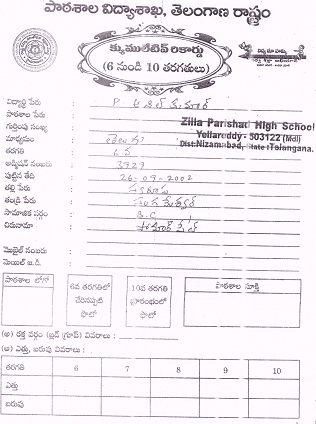 పాఠశాల విద్యాశాఖ, తెలంగాణ రాష్ట్రం
క్యుములేటివ్ రికార్డు
(6 నుండి 10 తరగతులు)
విద్యార్థి పేరు :
పాఠశాల పేరు :
Zilla Parishad High School
గుర్తింపు సంఖ్య :
Yellareddy - 503122 (Mdl)
మాధ్యమం : తెలుగు
Dist:Nizamabad, State:Telangana.
తరగతి :
అడ్మిషన్ నంబరు : 3929
పుట్టిన తేది : 26-09-2002
తల్లి పేరు :
తండ్రి పేరు :
సామాజిక వర్గం : B.C
చిరునామా :
మొబైల్ నంబరు :
మెయిల్ ఐ.డి. :
పాఠశాల లోగో
6వ తరగతిలో చేరినప్పటి ఫొటో
10వ తరగతి ప్రారంభంలో ఫొటో
పాఠశాల సూక్తి
(అ) రక్త వర్గం (బ్లడ్ గ్రూప్) వివరాలు :
(ఆ) ఎత్తు, బరువు వివరాలు :
తరగతి 6 7 8 9 10
ఎత్తు
బరువు